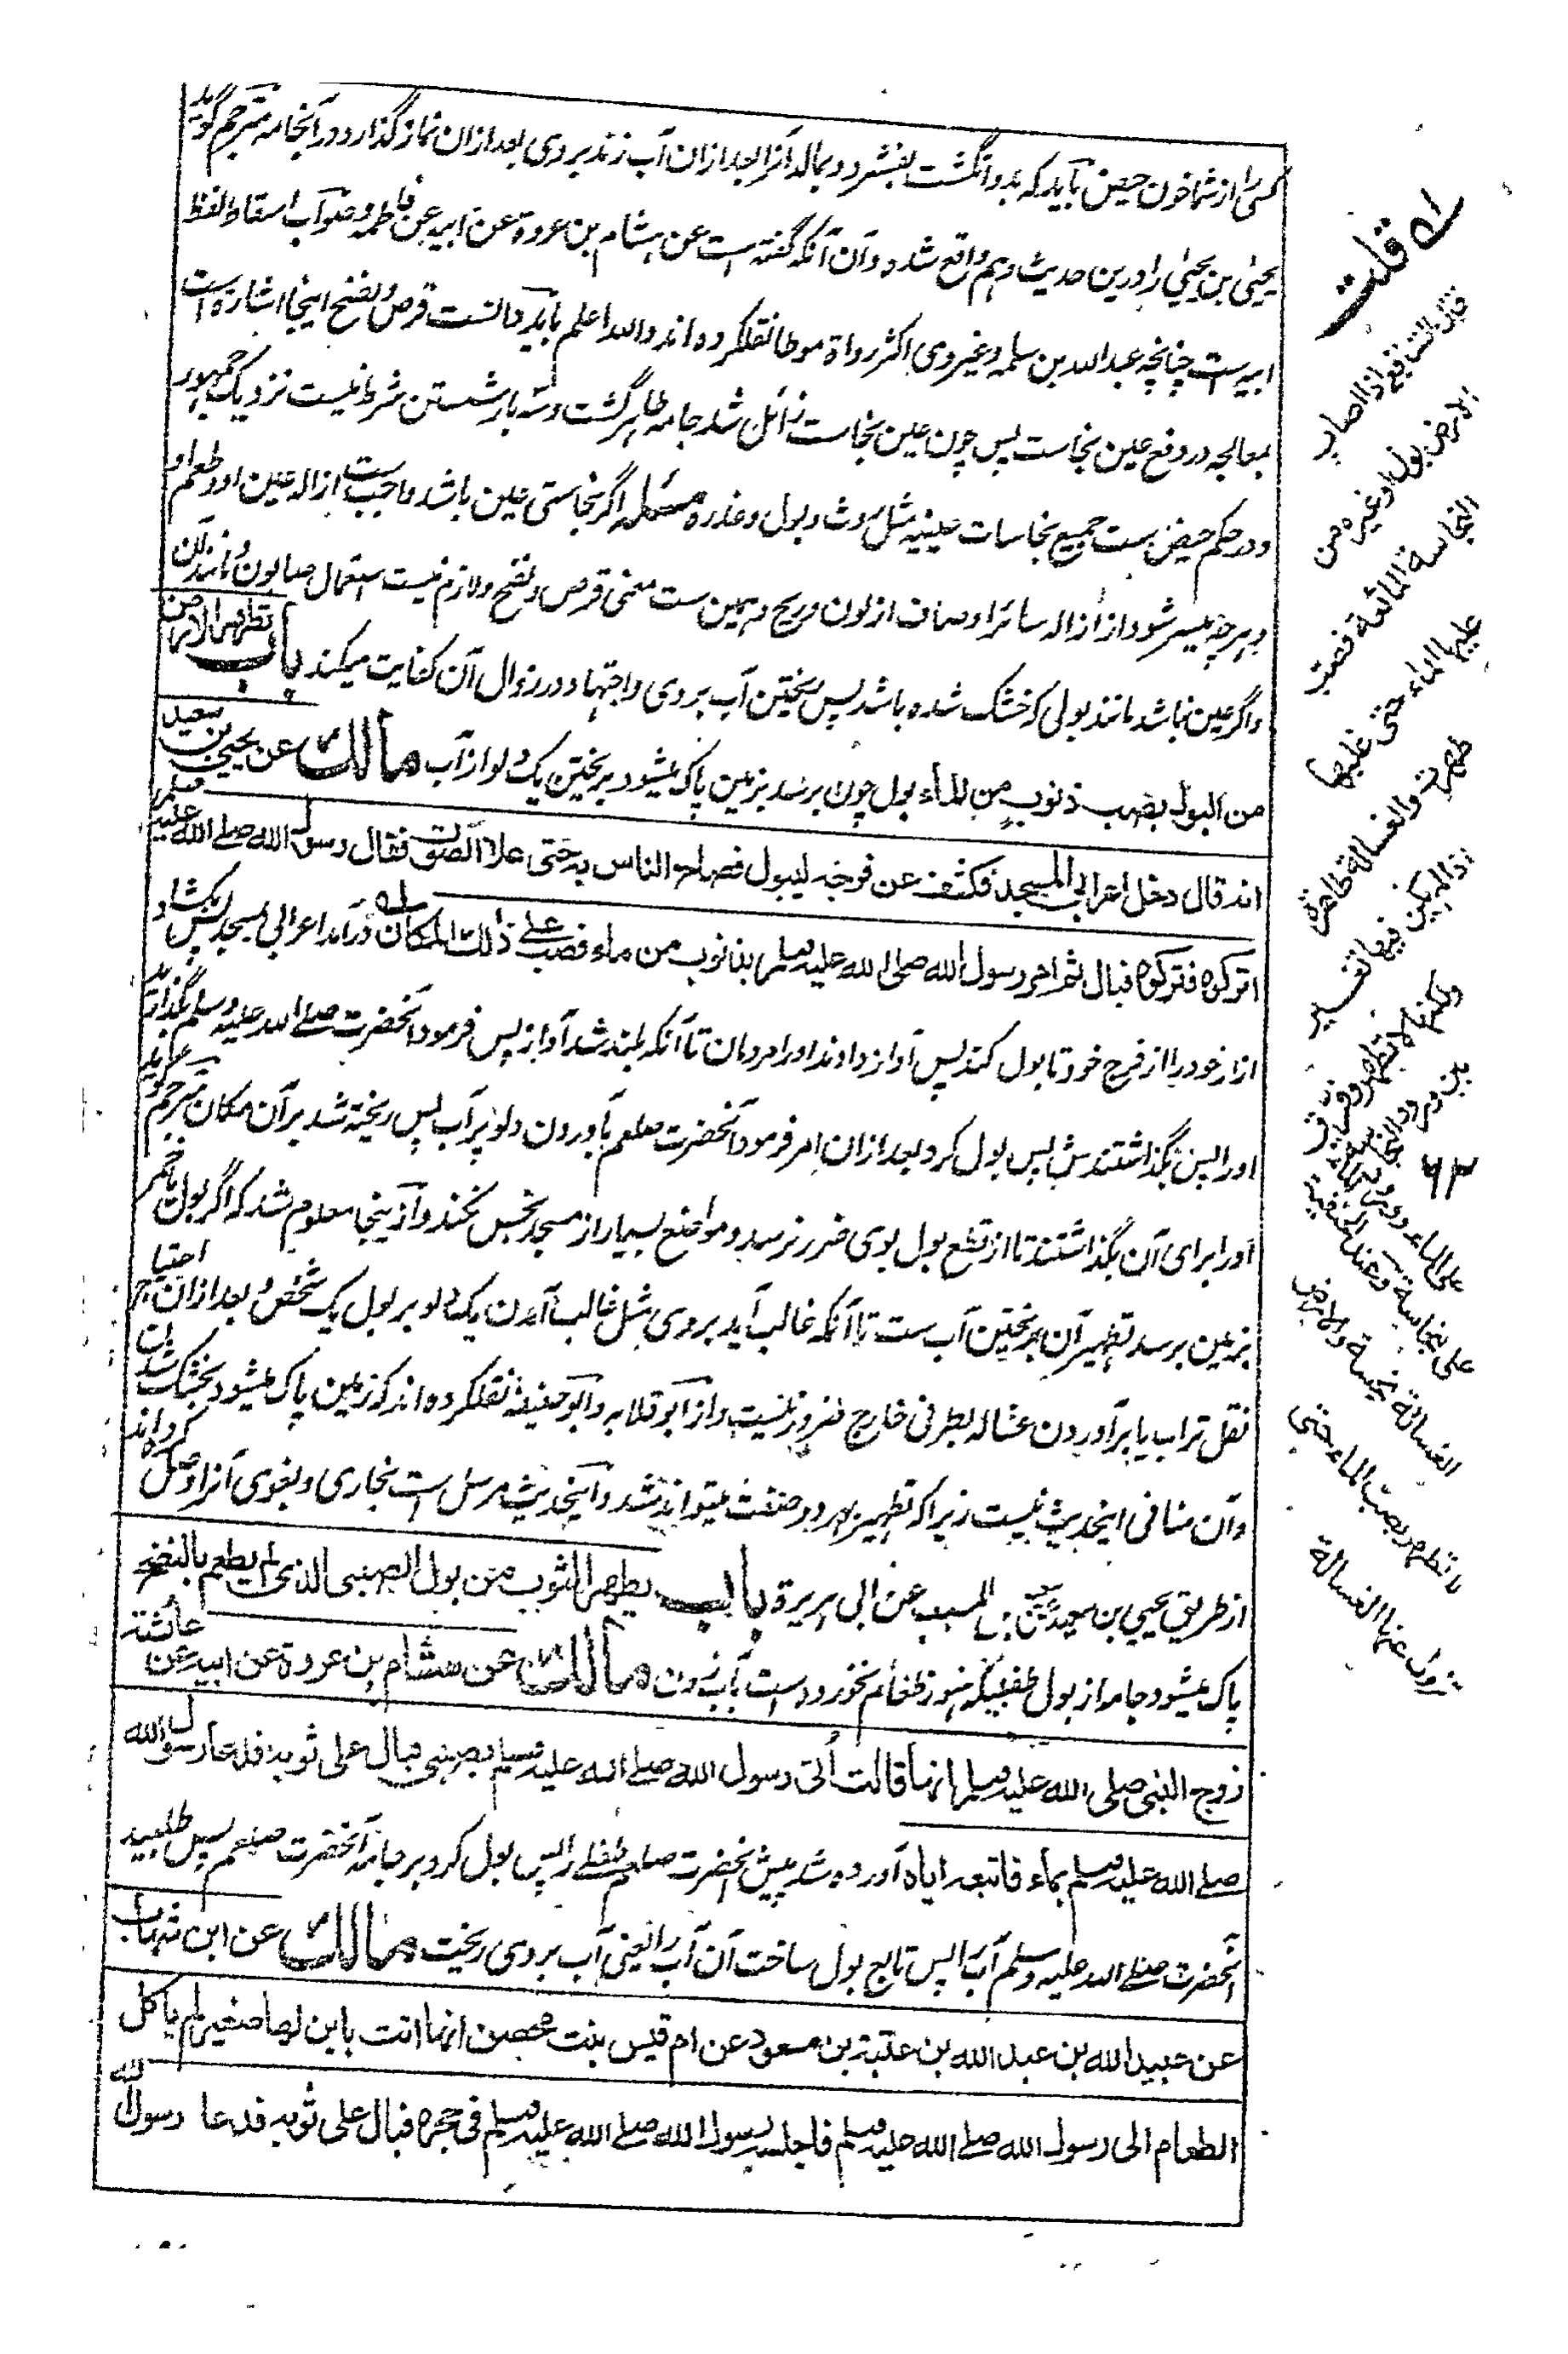 کسی را از شما خون حیض باید که بدو انگشت بفشرد و بمالد آنرا بعد ازان آب زند بر وی بعد ازان نماز گذارد در آنجامه مترجم گوید
یحیی بن یحیی را درین حدیث وهم واقع شده و آن آنکه گفته است عن هشام بن عروة عن ابیه عن فاطمه و صواب اسقاط لفظ
ابیه است چنانچه عبدالله بن سلمه و غیر وی اکثر رواة موطا نقل کرده اند والله اعلم باید دانست قرص و نضح اینجا اشاره است
بمعالجه در دفع عین نجاست پس چون عین نجاست زائل شد جامه طاهر گشت و سه بار شستن شرط نیست نزدیک جمهور
و در حکم حیض ست جمیع نجاسات عینیه مثل روث و بول و عذره مسئله اگر نجاستی عین باشد واجب ست ازاله عین او و طعم او
و هرچه میسر شود از ازاله سائر اوصاف از لون و ریح و همین ست معنی قرص و نضح و لازم نیست استعمال صابون و مانند آن
و اگر عین نباشد مانند بولی که خشک شده باشد پس ریختن آب بر وی و اجتهاد در زوال آن کفایت میکند باب تطهیر الارض
من البول بصب ذنوب من الماء بول چون برسد بزمین پاک میشود بریختن یک دلو از آب مالک عن یحیی بن سعید
انه قال دخل اعرابی المسجد فکشف عن فرجه لیبول فصاح الناس به حتی علا الصوت فقال رسول الله صلی الله علیه وسلم
اترکوه فترکوه فبال ثم امر رسول الله صلی الله علیه وسلم بذنوب من ماء فصب علی ذلک المکان در آمد اعرابی بمسجد پس بکشاد
ازار خود را از فرج خود تا بول کند پس آواز دادند او را مردمان تا آنکه بلند شد آواز پس فرمود آنحضرت صلی الله علیه وسلم بگذارید
او را پس بگذاشتندش پس بول کرد بعد ازان امر فرمود آنحضرت صلعم بآوردن دلو پر آب پس ریخته شد بر آن مکان مترجم گوید
او را برای آن بگذاشتند تا از قطع بول بوی ضرر نرسد و مواضع بسیار از مسجد نجس نکند و از ینجا معلوم شد که اگر بول
بزمین برسد تطهیر آن بریختن آب ست تا آنکه غالب آید بر وی مثل غالب آمدن یک دلو بر بول یک شخص و بعد ازان احتیاج
نقل تراب یا بر آوردن غساله بطرفی خارج ضرور نیست و از ابو قلابه و ابو حنیفه نقل کرده اند که زمین پاک میشود بخشک شدن
و آن منافی اینحدیث نیست زیرا که تطهیر بهر دو صفت میتواند شد و اینحدیث مرسل است بخاری و بغوی آنرا وصل کرده اند
از طریق یحیی بن سعید بن المسیب عن ابی هریرة باب یطهر الثوب من بول الصبی الذی لم یطعم بالنضح
پاک میشود جامه از بول طفلیکه هنوز طعام نخورده است بآب زدن مالک عن هشام بن عروة عن ابیه عن عائشة
زوج النبی صلی الله علیه وسلم انها قالت أتی رسول الله صلی الله علیه وسلم بصبی فبال علی ثوبه فدعا رسول الله
صلی الله علیه وسلم بماء فاتبعه ایاه آورده شد پیش آنحضرت صلعم طفلے را پس بول کرد بر جامه آنحضرت صلعم پس طلبید
آنحضرت صلی الله علیه وسلم آب را پس تابع بول ساخت آن آب را یعنی آب بر وی ریخت مالک عن ابن شهاب
عن عبید الله بن عبد الله بن عتبة بن مسعود عن ام قیس بنت محصن انها اتت بابن لها صغیر لم یاکل
الطعام الی رسول الله صلی الله علیه وسلم فاجلسه رسول الله صلی الله علیه وسلم فی حجره فبال علی ثوبه فدعا رسول الله
له قلت
قال الشافعی اذا اصاب
الارض بول او غیره من
النجاسة المائعة فصب
علیها الماء حتی غلبها
طهرت والغسالة طاهرة
اذا لم یکن فیها تغیر
۶۳
علی نجاسة وعند الحنفیة
الغسالة نجسة والارض
لا تطهر بصب الماء حتی
یزول عنها الغسالة